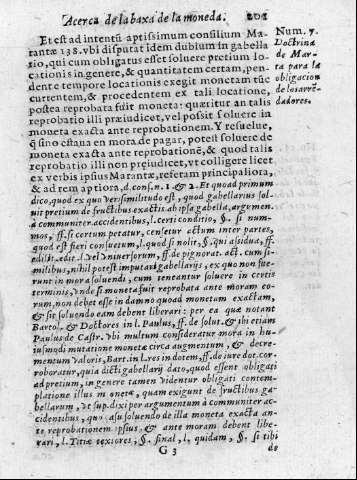 Acerca de la baxa de la moneda. 201
Et est ad intentũ aptissimum consilium Ma-
rantæ 138. vbi disputat idem dubium in gabella
rio, qui cum obligatus esset soluere pretium lo
cationis in genere, & quantitatem certam, pen-
dente tempore locationis exegit monetam tũc
currentem, & procedentem ex tali locatione,
postea reprobata fuit moneta: quæritur an talis
reprobatio illi præiudicet, vel possit soluere in
moneta exacta ante reprobationem. Y resuelue,
q̃ sino estaua en mora de pagar, potest soluere de
moneta exacta ante reprobationẽ, & quod talis
reprobatio illi non preiudicet, vt colligere licet
ex verbis ipsius Marantæ, referam principaliora,
& ad rem aptiora, d. cons. n. 1. & 2. Et quod primum
dico, quod ex quo verisimilitudo est, quod gabellarius sol-
uit pretium de fructibus exactis ab ipsa gabella, argumen.
à communiter accidentibus, l. certi conditio, §. si num-
mos, ff. si certum petatur, censetur actum inter partes,
quod est fieri consuetum, l. quod si nolit, §. qui assidua, ff.
ædilit. edit. l. vel vniuersorum, ff. de pignorat. act. cum si-
milibus, nihil potest imputari gabellarijs, ex quo non fue-
runt in mora soluendi, cum teneantur soluere in certis
terminis, vnde si moneta fuit reprobata ante moram eo-
rum, non debet esse in damno quoad monetam exactam,
& sic soluendo eam debent liberari: per ea quæ notant
Bartol. & Doctores in l. Paulus, ff. de solut. & ibi etiam
Paulus de Castr. vbi multum consideratur mora in hu-
iusmodi mutatione monetæ circa augmentum, & decre-
mentum valoris, Bart. in l. res in dotem, ff. de iure dot. cor-
roboratur, quia dicti gabellarij dato, quod essent obligati
ad pretium, in genere tamen videntur obligati contem-
platione illius monetæ, quam exigunt de fructibus ga-
bellarum, vt sup. dixi per argumentum à communiter ac-
cidentibus, quo casu soluendo de illa moneta exacta an-
te reprobationem ipsius, & ante moram debent libe-
rari, l. Titiæ textores, §. final, l. quidam, §. si tibi
G 3 de
Num. 7.
Doctrina
de Mar-
ta para la
obligacion
de los arrẽ-
dadores.